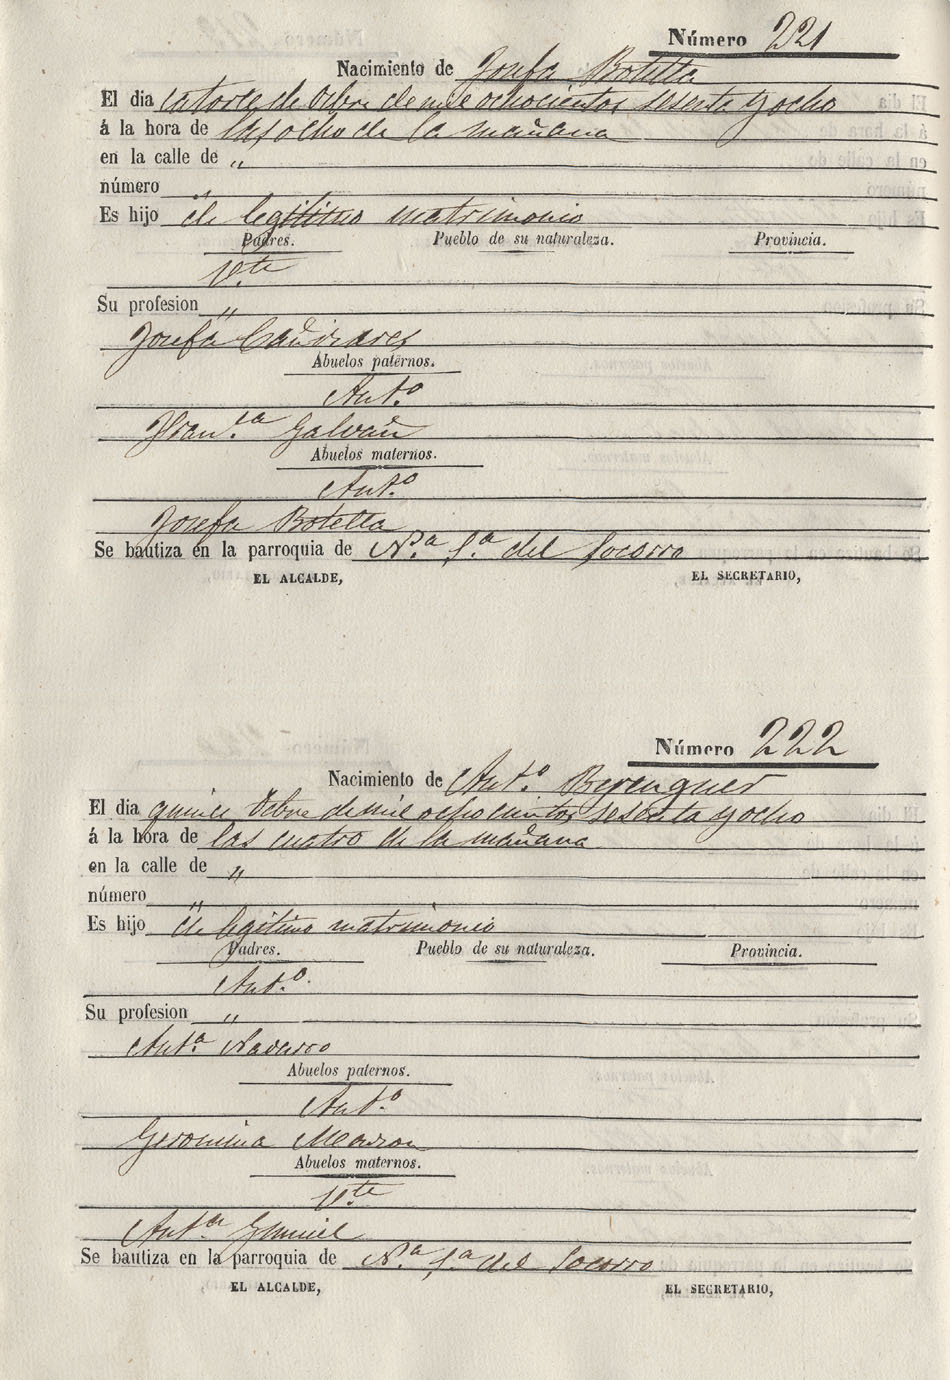 Número 221
Nacimiento de Josefa Botella
El dia catorce de Obre de mil ochocientos sesenta y ocho
á la hora de las ocho de la mañana
en la calle de "
número "
Es hijo de legitimo matrimonio
Padres. Pueblo de su naturaleza. Provincia.
Vte
Su profesion "
Josefa Cañizares
Abuelos paternos.
Ant.º
Fran.ca Galvañ
Abuelos maternos.
Ant.º
Josefa Botella
Se bautiza en la parroquia de N.ª S.ª del Socorro
EL ALCALDE, EL SECRETARIO,
Número 222
Nacimiento de Ant.º Berenguer
El dia quince Obre de mil ochocientos sesenta y ocho
á la hora de las cuatro de la mañana
en la calle de "
número "
Es hijo de legitimo matrimonio
Padres. Pueblo de su naturaleza. Provincia.
Ant.º
Su profesion "
Ant.ª Navarro
Abuelos paternos.
Ant.º
Geronima
Abuelos maternos.
Vte
Ant.ª
Se bautiza en la parroquia de N.ª S.ª del Socorro
EL ALCALDE, EL SECRETARIO,